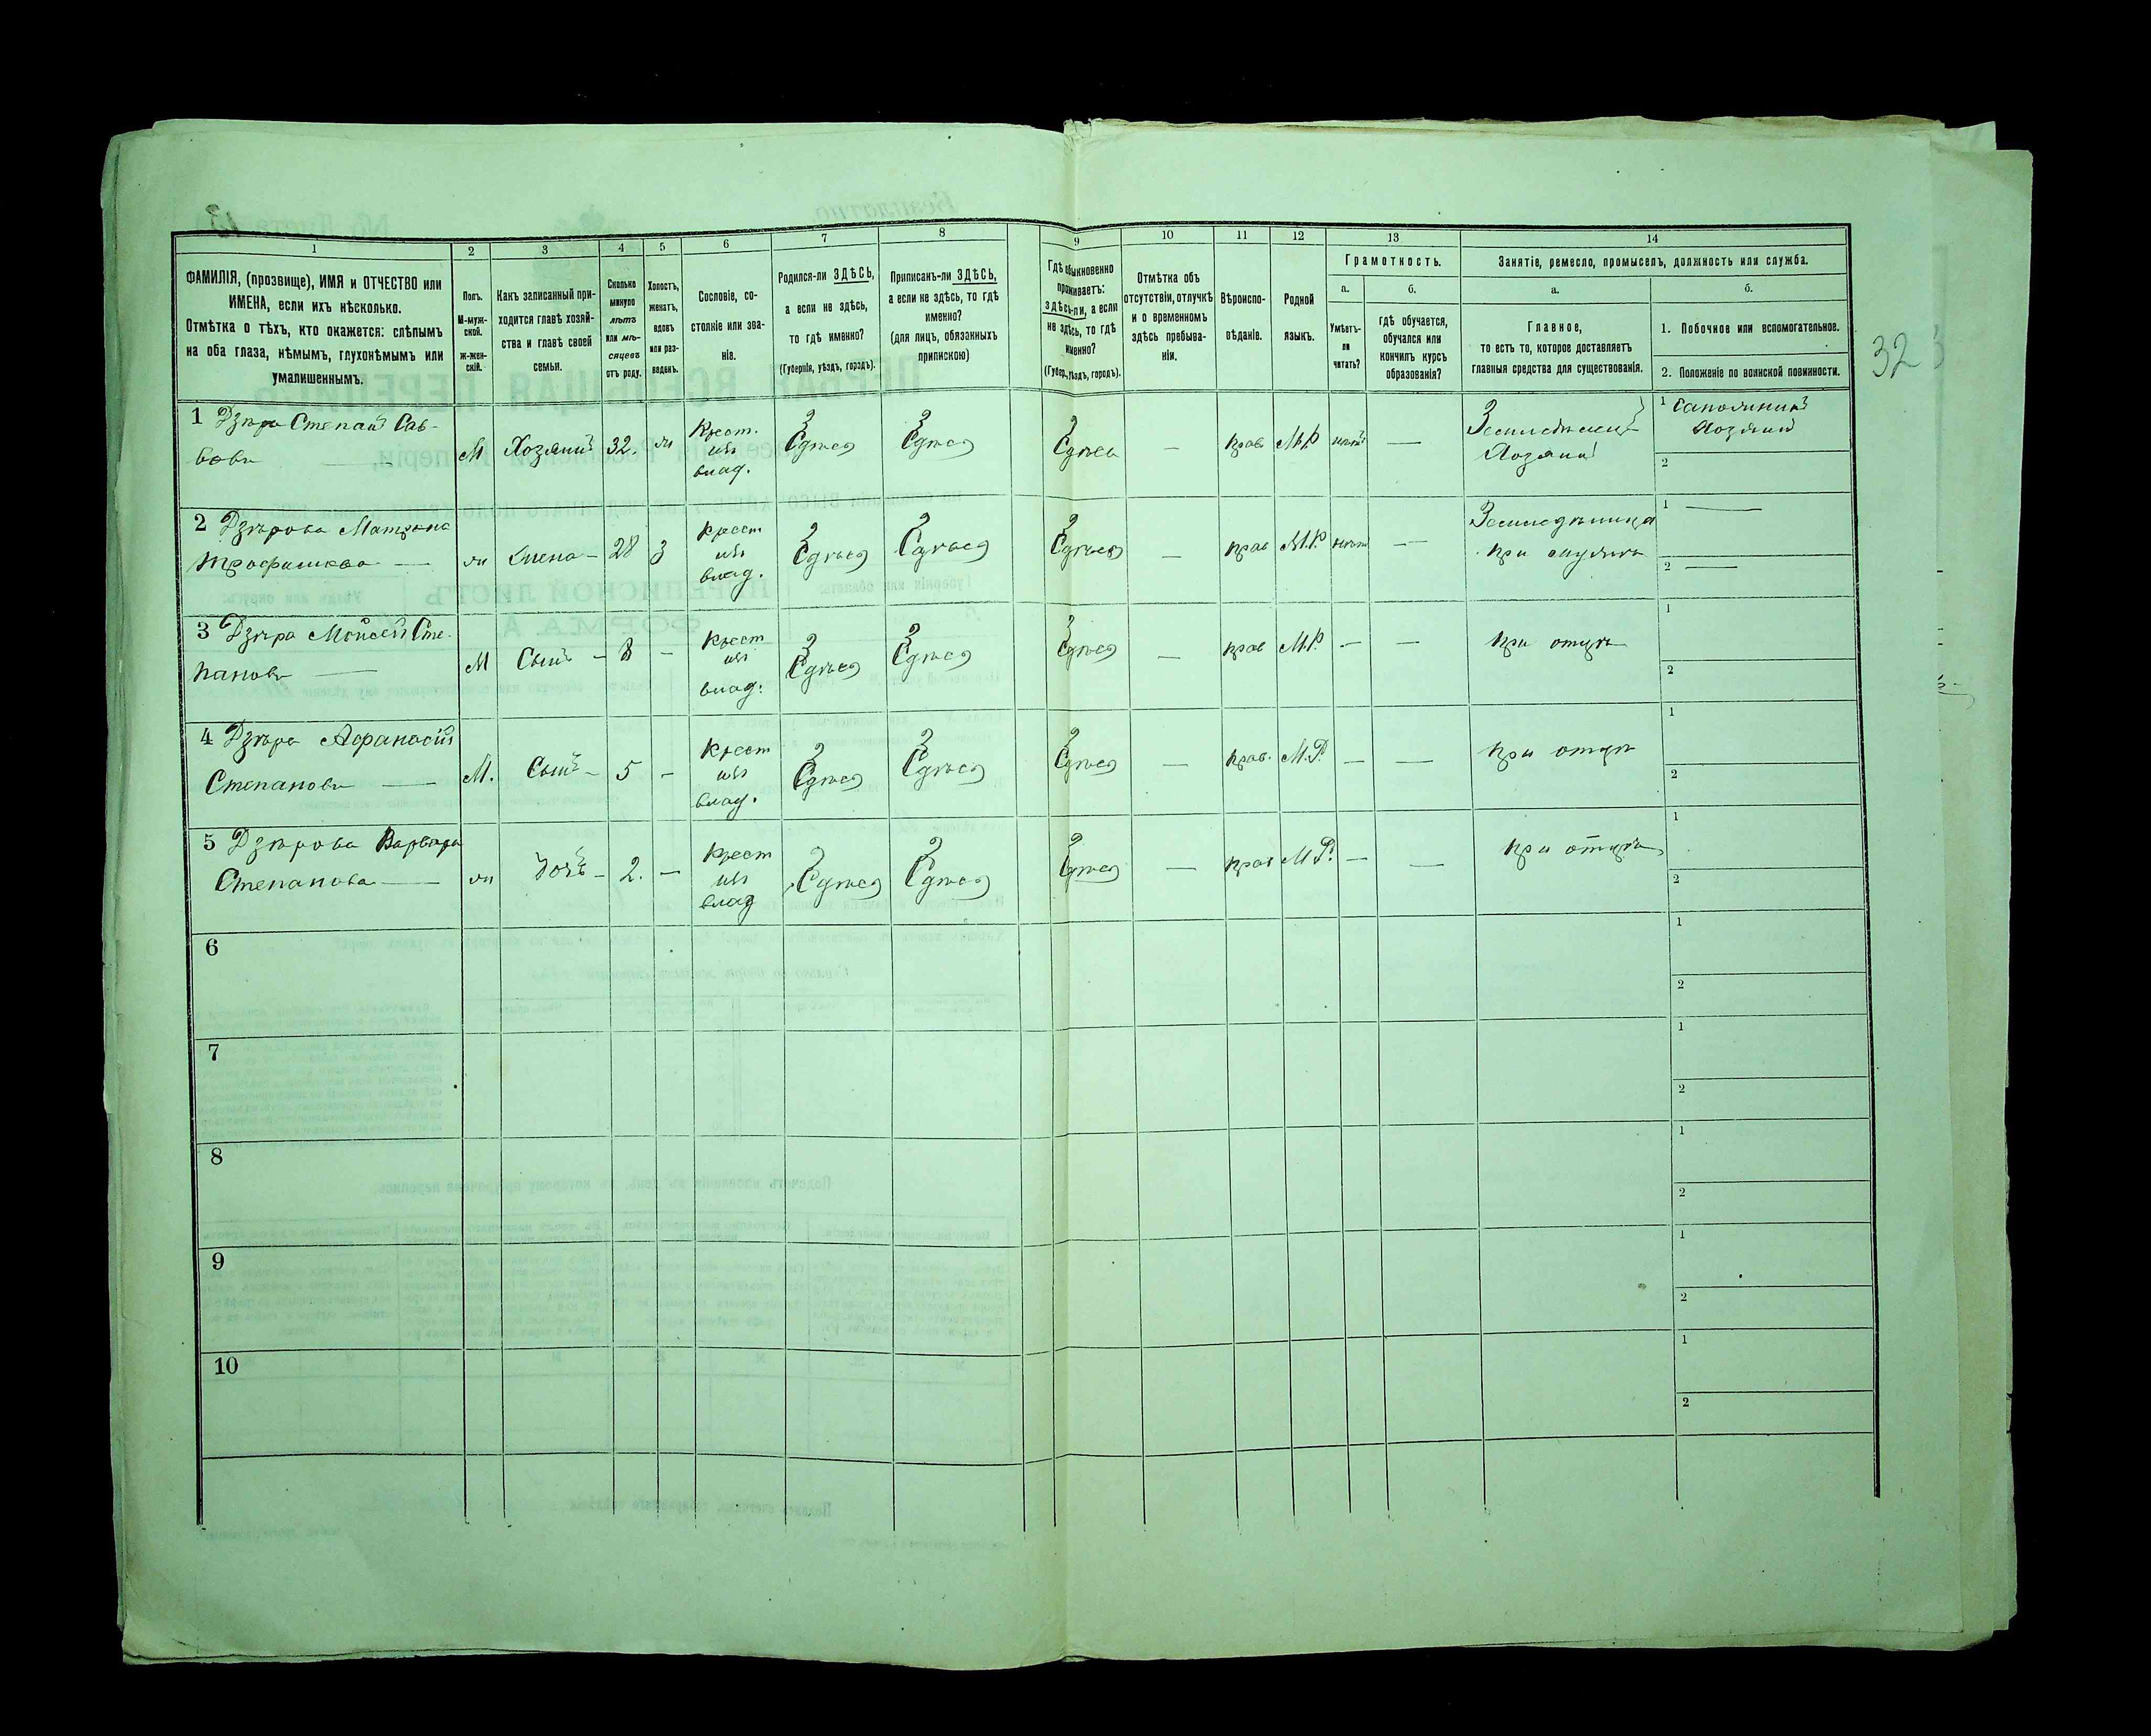 1
2
3
4
5
6
7
8
9
10
11
12
13
14
ФАМИЛІЯ, (прозвище), ИМЯ и ОТЧЕСТВО или
ИМЕНА, если ихъ нѣсколько.
Отмѣтка о тѣхъ, кто окажется: слѣпымъ
на оба глаза, нѣмымъ, глухонѣмымъ или
умалишеннымъ.
Полъ.
М-муж-
ской.
ж-жен-
скій.
Какъ записанный при-
ходится главѣ хозяй-
ства и главѣ своей
семьи.
Сколько
минуло
лѣтъ
или мѣ-
сяцевъ
отъ роду.
Холостъ,
женатъ,
вдовъ
или раз-
веденъ.
Сословіе, со-
стояніе или зва-
ніе.
Родился-ли ЗДѢСЬ,
а если не здѣсь,
то гдѣ именно?
(Губернія, уѣздъ, городъ).
Приписанъ-ли ЗДѢСЬ,
а если не здѣсь, то гдѣ
именно?
(для лицъ, обязанныхъ
припискою)
Гдѣ обыкновенно
проживаетъ:
здѣсь-ли, а если
не здѣсь, то гдѣ
именно?
(Губер., уѣздъ, городъ).
Отмѣтка объ
отсутствіи, отлучкѣ
и о временномъ
здѣсь пребыва-
ніи.
Вѣроиспо-
вѣданіе.
Родной
языкъ.
Грамотность.
а.
Умѣетъ-
ли
читать?
б.
гдѣ обучается,
обучался или
кончилъ курсъ
образованія?
Занятіе, ремесло, промыселъ, должность или служба.
а.
Главное,
то есть то, которое доставляетъ
главныя средства для существованія.
б.
1. Побочное или вспомогательное.
2. Положеніе по воинской повинности.
32
1 Дзюра Степанъ Сав-
вовъ — М Хозяинъ 32. ж Крест. изъ влад. Здѣсь Здѣсь Здѣсь — прав М.Р —
Хозяинъ
1 Сапожникъ
Хозяинъ
2
2 Дзюрова Матрона
Трофимова — ж Жена — 28 З Крест изъ влад. Здѣсь Здѣсь Здѣсь — прав М.Р —
при мужѣ
1 —
2 —
3 Дзюра Моисей Сте-
пановъ — М Сынъ — 8 — Крест изъ влад. Здѣсь Здѣсь Здѣсь — прав М.Р. — — при отцѣ
1
2
4 Дзюра Афанасій
Степановъ — М. Сынъ — 5 — Крест изъ влад. Здѣсь Здѣсь Здѣсь — прав. М.Р. — — при отцѣ
1
2
5 Дзюрова Варвара
Степанова — ж Дочь — 2. — Крест изъ влад Здѣсь Здѣсь Здѣсь — прав М.Р. — — при отцѣ
1
2
6
1
2
7
1
2
8
1
2
9
1
2
10
1
2